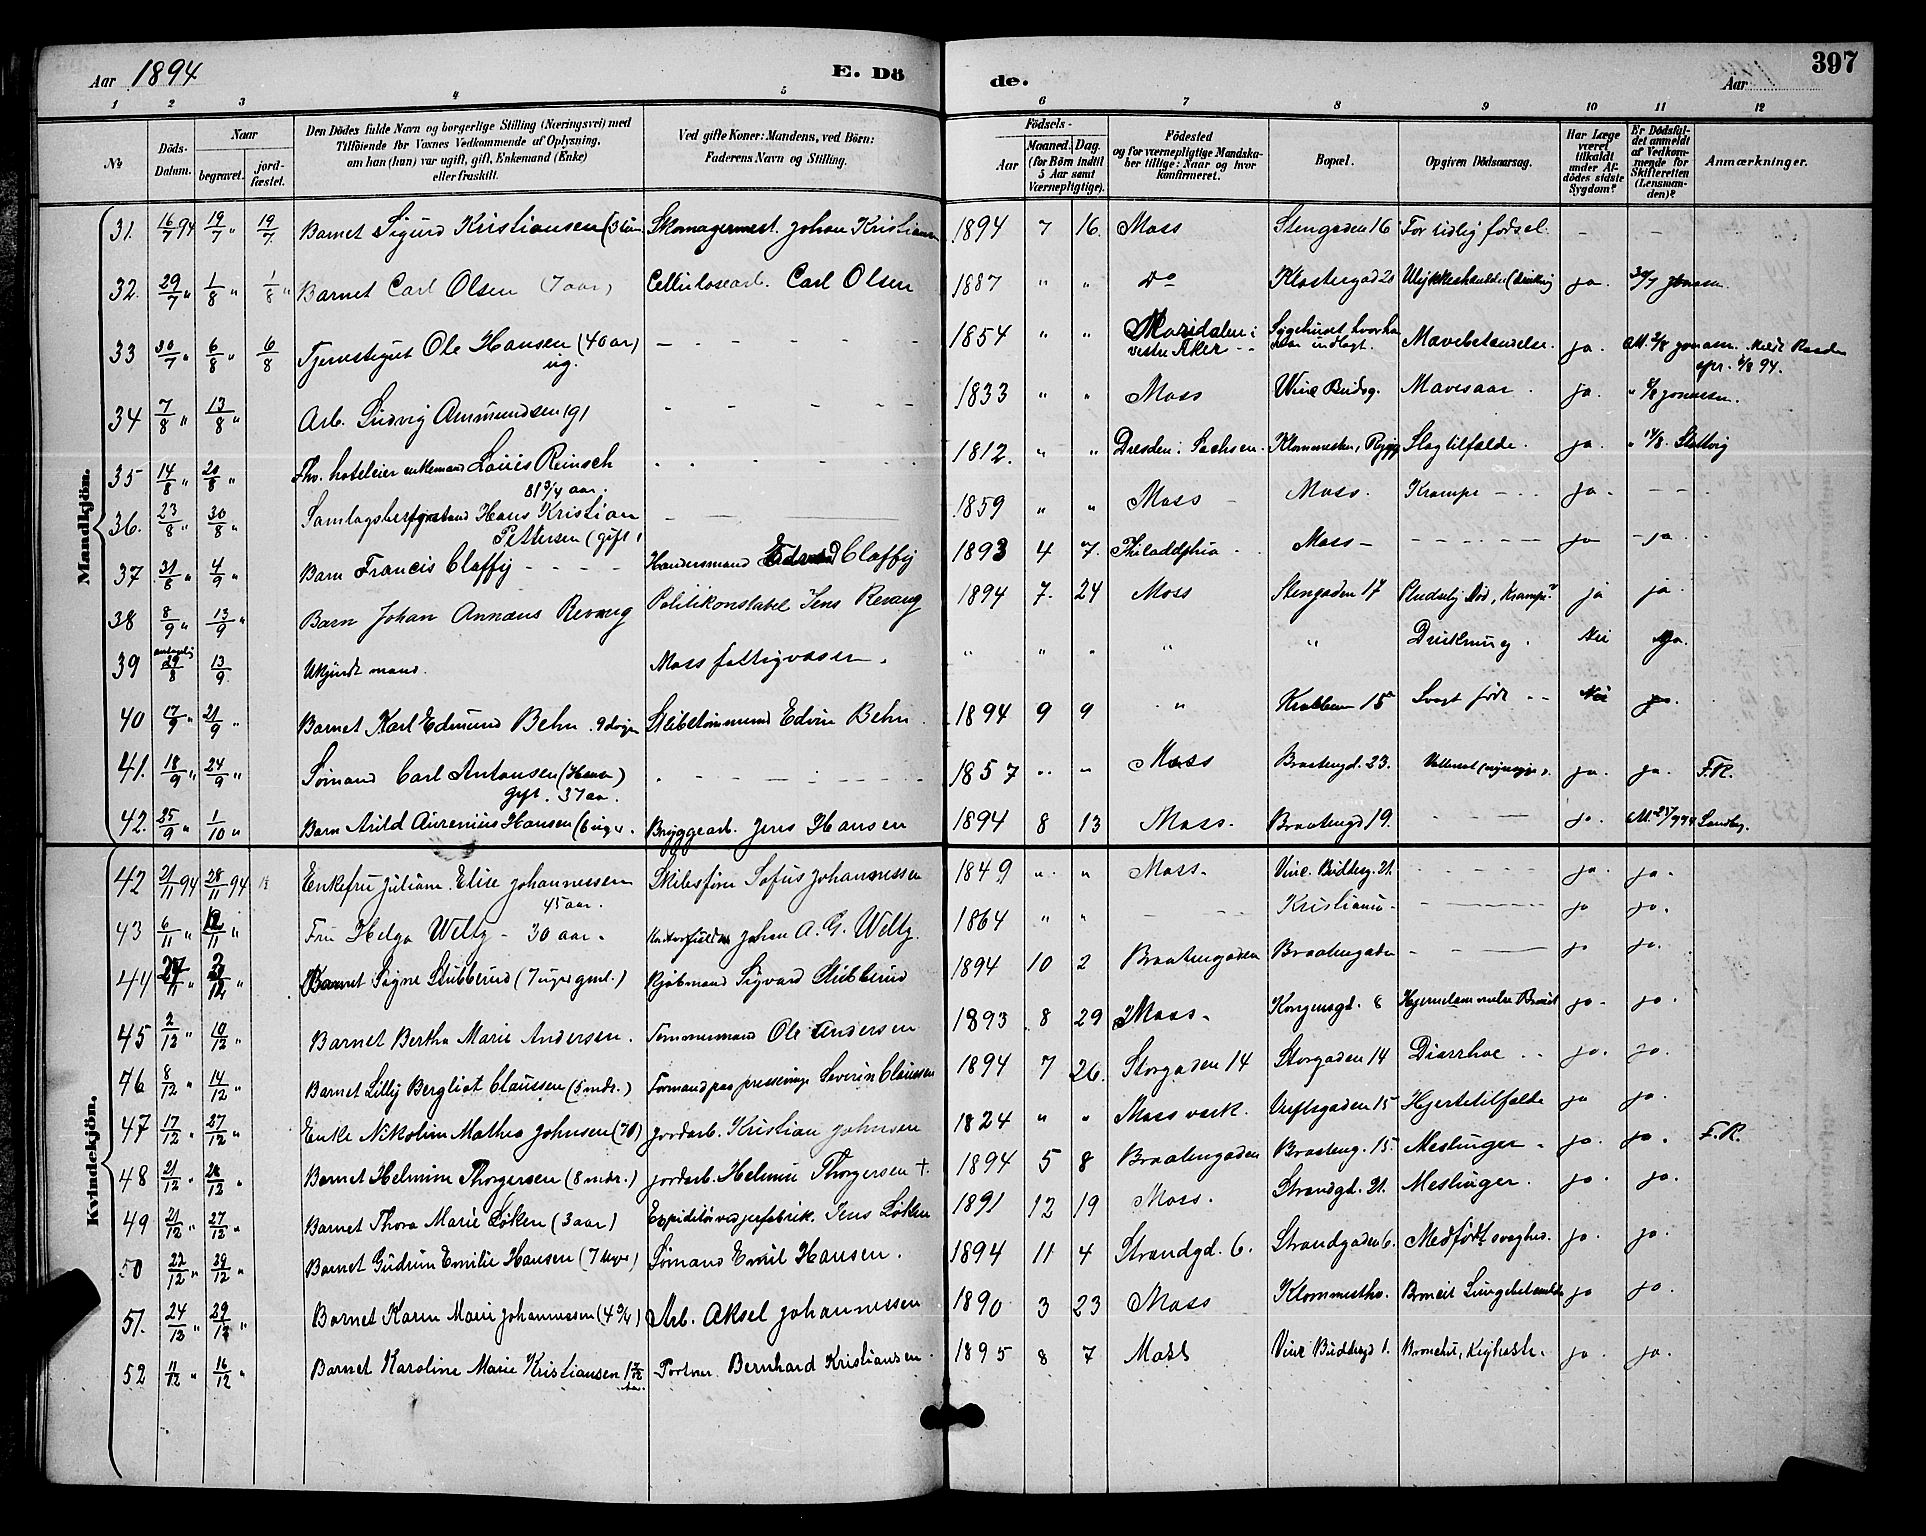 Aar 1894 E. Dö de. Aar 397
1 2 3 4 5 6 7 8 9 10 11 12
№ Döds-Datum. Naar begravet. jord-fæstet. Den Dödes fulde Navn og borgerlige Stilling (Næringsvei) med Tilföiende for Voxnes Vedkommende af Oplysning, om han (hun) var ugift, gift, Enkemand (Enke) eller fraskilt. Ved gifte Koner: Mandens, ved Börn: Faderens Navn og Stilling. Födsels- Aar Maaned. Dag. (for Börn indtil 5 Aar samt Værnepligtige). Födested og for værnepligtige Mandska-ber tillige: Naar og hvor konfirmeret. Bopæl. Opgiven Dödsaarsag. Har Læge været tilkaldt under Af-dödes sidste Sygdom? Er Dödsfal-det anmeldt af Vedkom-mende for Skifteretten (Lensman-den)? Anmærkninger.
Mandkjön.
31. 16/7 94 19/7 " 19/7 Barnet Sigurd Kristiansen Skomagermest. Johan Kristiansen 1894 7 16. Moss Stengaden 16 For tidlig fødsel. – –
32. 29/7 " 1/8 " 1/8 " Barnet Carl Olsen (7 aar) Cellulosearb. Carl Olsen 1887 " " Do Klostergad 20 ja. 30/7
33 30/7 " 6/8 " 6/8 Tjenestegut Ole Hansen (40 aar) ug. 1854 " " Maridalen i vestre Aker Sygehuset hvor han var indlagt. Mavebetændelse. ja.
34 7/8 " 13/8 " Arb. Ludvig Ammundsen 1833 " " Moss Vinc. Budsg. Mavesaar. ja.
35 14/8 " 20/8 " Fhv. hoteleier enkemand Louis Reinsch 81 3/4 aar. 1812. " " Dresden i Sachsen. Slagtilfælde. ja.
36. 23/8 " 30/8 " Hans Kristian Pettersen (gift) 1859 " " Moss Moss. Krampe ja. – –
37 31/8 " 4/9 " Barn Francis Claffy Claffy 1893 4 7. Philadelphia Moss ja – ja.
38 8/9 " 13/9 " Barn Johan Annæus Revaug Politikonstabel Jens Revaug 1894 7. 24 Moss Stengaden 17 ja ja.
39 29/8 13/9 Ukjendt mand. Moss fattigvæsen. " " " " " Drukning. Nei ja.
40 17/9 " 21/9 " Barnet Karl Edmund Behn. 9 Støbetømmermand Edvin Behn. 1894 9 9 " Svagt født Nei ja.
41. 18/9 " 24/9 " Sømand Carl Antonsen gift. 37 aar. 1857 " " Moss Braatengd. 23. ja. ja. F.R.
42. 25/9 " 1/10 " Barn Arild Aurenius Hansen (6 uger. Bryggearb. Jens Hansen 1894 8 13 Moss. Braatengd 19. ja.
Kvindekjön.
42 21/11 94 28/11 94 Enkefru Juliane Elise Johannessen 45 aar. Skibsfører Sofus Johannessen 1849 " " Moss. Vinc. Buddesg. 21. ja. ja.
43 6/11 " 12/11 " Fru Helga Weltz – 30 aar. Johan A. G. Weltz. 1864 " " Kristiania ja ja.
44 27/11 " 2/12 " Barnet Signe Stubberud (7 uger gml.) Kjøbmand Sigvard Stubberud 1894 10 2 Braatengaden Braatengaden ja ja.
45 2/12 " 10/12 " Barnet Bertha Marie Andersen. Tømmermand Ole Andersen 1893 8 29 Moss. Kongensgd. 8 ja. ja.
46 8/12 " 14/12 " Barnet Lilly Bergliot Claussen (5 mdr.) Severin Claussen 1894 7 26. Storgaden 14 Storgaden 14 Diarrhoe ja. ja.
47 17/12 " 27/12 " Enke Nikoline Mathea Johnsen (70) Jordarb. Kristian Johnsen 1824 " " Mossværk. Værftsgaden 15 Hjertetilfælde ja ja.
48 21/12 " 28/12 " Barnet Helmine Thorgersen (8 mdr.) Jordarb. Helmin Thorgersen +. 1894 5 8 Braatengaden Braateng. 15. Meslinger. ja. ja. F.R.
49 21/12 " 27/12 " Barnet Thora Marie Løken (3 aar) Jens Løken 1891 12 19 Moss. Strandgd. 21. Meslinger. ja. ja.
50 22/12 " 29/12 " Barnet Gudrun Emilie Hansen (7 uger) Sømand Emil Hansen. 1894 11 4 Strandgd. 6. Strandgaden 6. Medfødt svaghed. ja. ja.
51. 24/12 " 29/12 " Barnet Karen Marie Johannessen (4 3/4) Arb. Aksel Johannessen 1890 3 23 Moss ja ja.
52 11/12 " 16/12 " Barnet Karoline Marie Kristiansen Portner Bernhard Kristiansen. 1895 8 7 Moss Vinc Buddesgd 1. ja. ja.